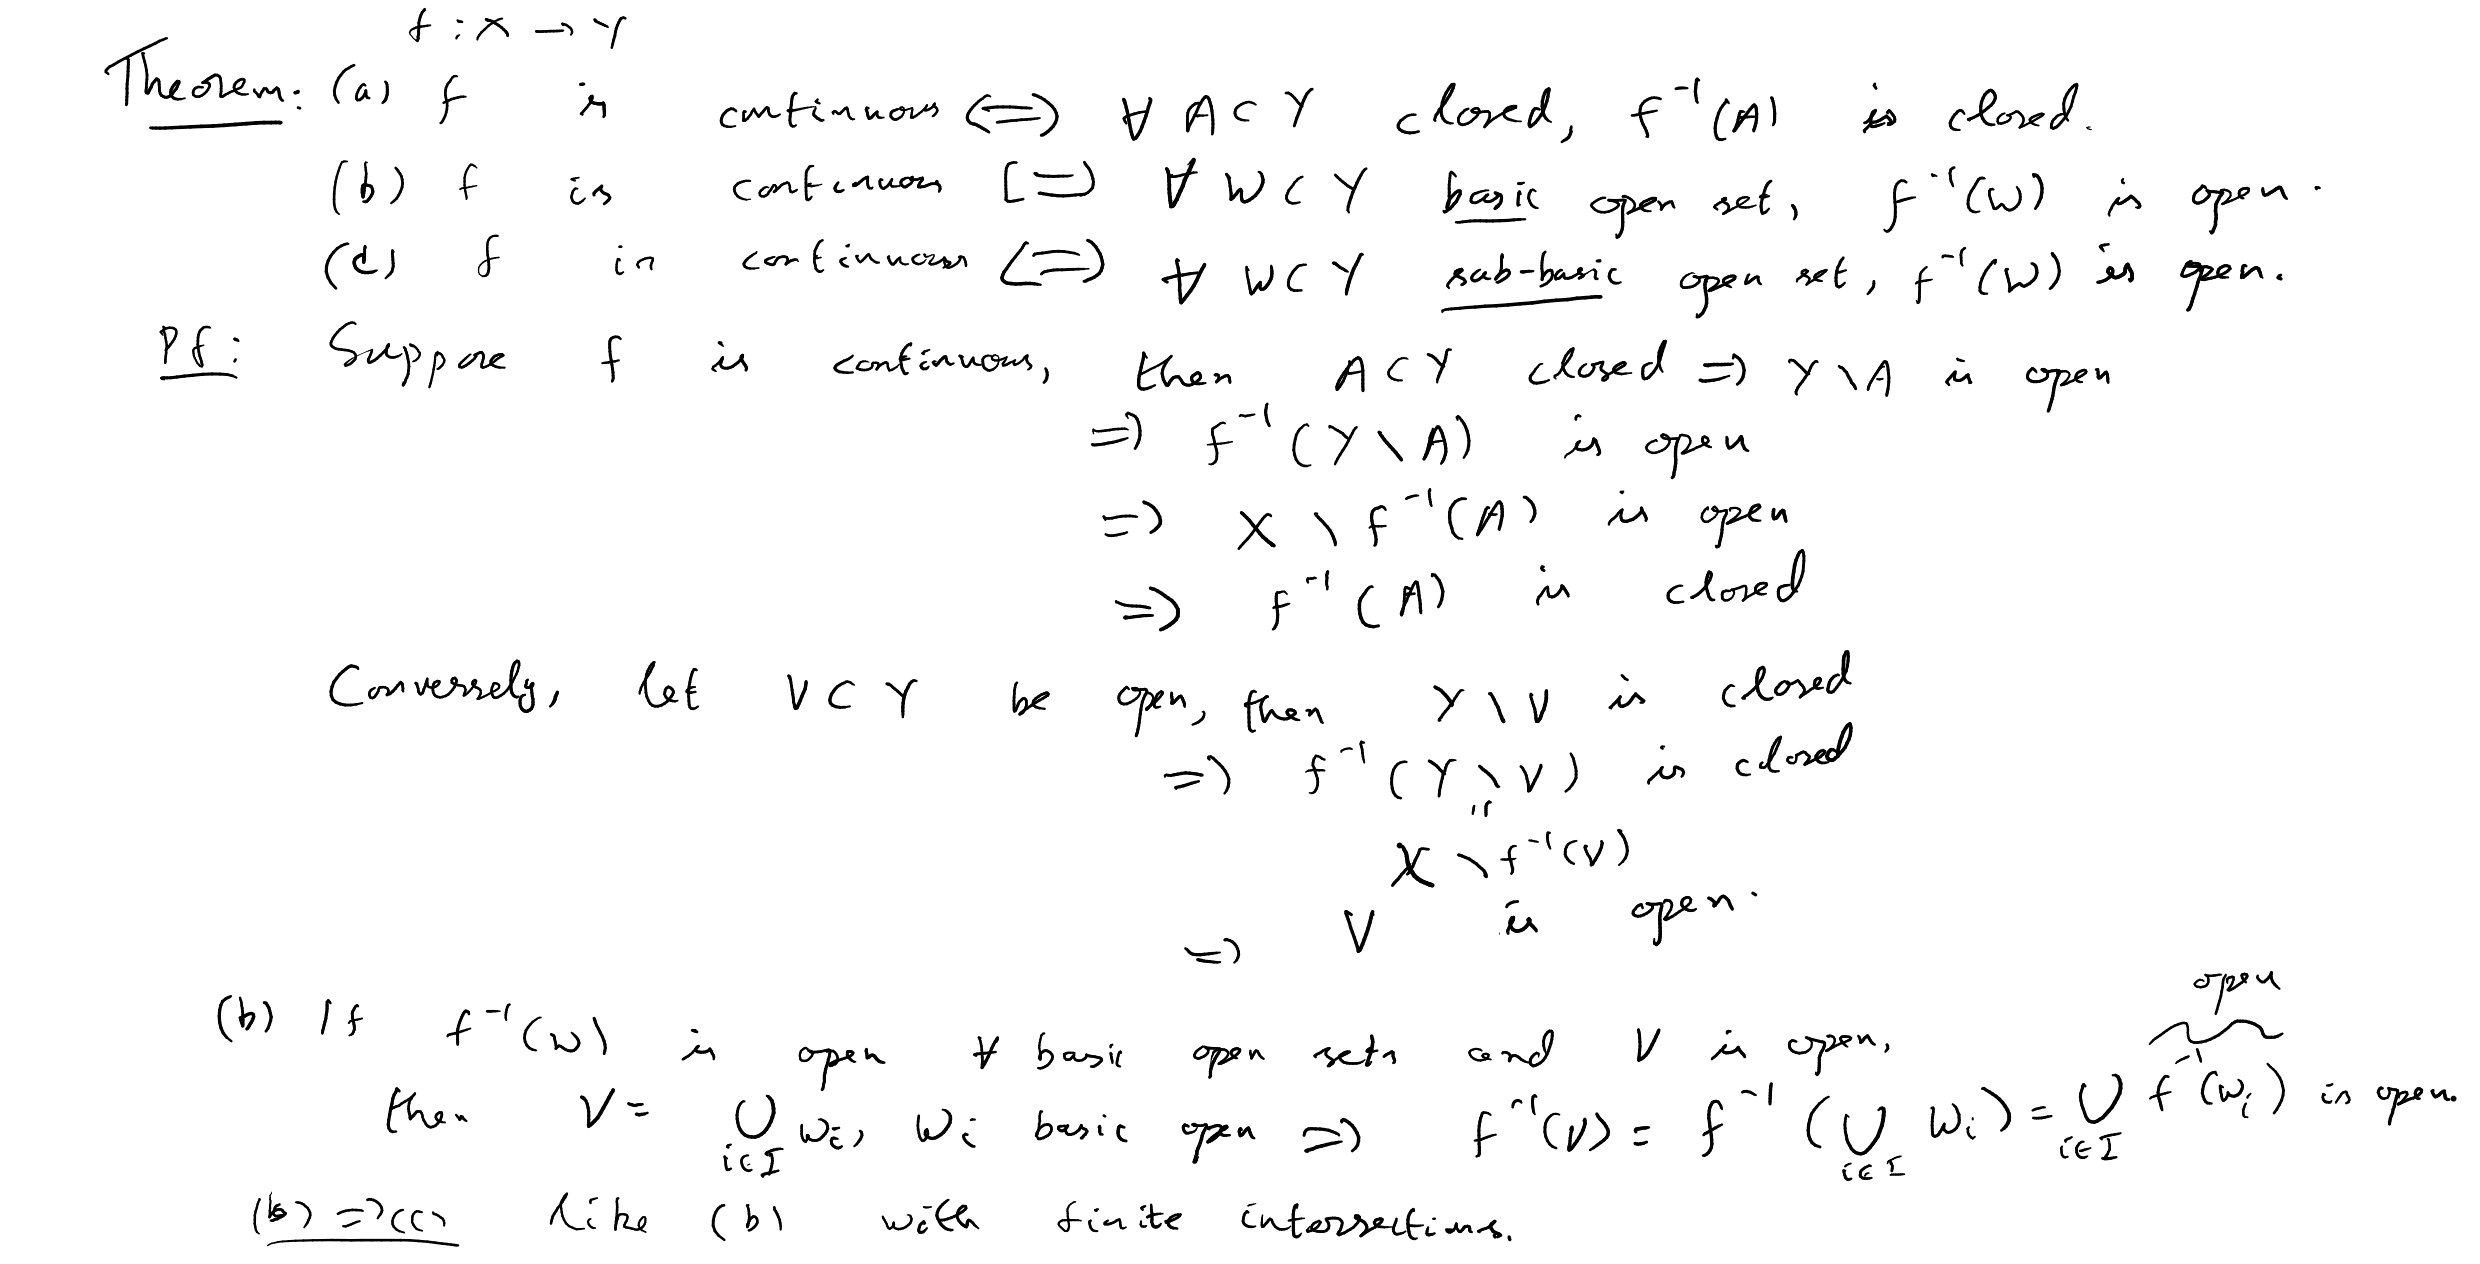 f : X → Y
Theorem: (a) f is continuous <=> ∀ A ⊂ Y closed, f⁻¹(A) is closed.
(b) f is continuous <=> ∀ W ⊂ Y basic open set, f⁻¹(W) is open.
(c) f is continuous <=> ∀ W ⊂ Y sub-basic open set, f⁻¹(W) is open.
Pf: Suppose f is continuous, then A ⊂ Y closed => Y \ A is open
=> f⁻¹(Y \ A) is open
=> X \ f⁻¹(A) is open
=> f⁻¹(A) is closed
Conversely, let V ⊂ Y be open, then Y \ V is closed
=> f⁻¹(Y \ V) is closed
"
X \ f⁻¹(V)
=> V is open.
open
(b) If f⁻¹(W) is open ∀ basic open sets and V is open,
then V = ∪_{i∈I} Wᵢ, Wᵢ basic open => f⁻¹(V) = f⁻¹(∪_{i∈I} Wᵢ) = ∪_{i∈I} f⁻¹(Wᵢ) is open.
(b) => (c) like (b) with finite intersections.